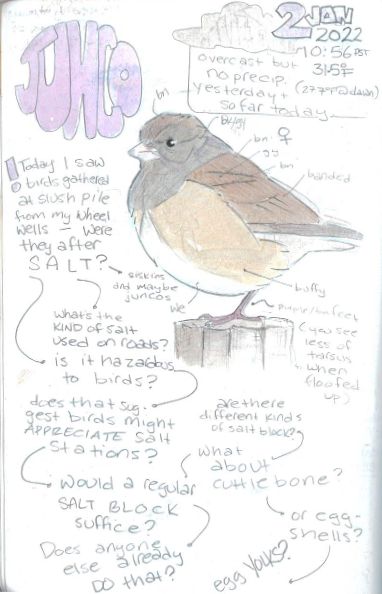 JUNCO
2 JAN
2022
10:56 PST
31.5°F
(27.7°F @ dawn)
overcast but
no precip.
yesterday +
so far today
bn
bk/gy
bn ♀
gy
bn
banded
! Today I saw
birds gathered
at slush pile
from my wheel
wells – were
they after
SALT?
siskins
and maybe
juncos
we
buffy
purple/buff feet
(you see
less of
tarsus
when
floofed
up)
what's the
KIND of salt
used on roads?
is it hazardous
to birds?
does that sug-
gest birds might
APPRECIATE salt
stations?
would a regular
SALT BLOCK
suffice?
Does anyone
else already
DO that?
are there
different kinds
of salt block?
what
about
cuttlebone?
or egg-
shells?
egg yolks?